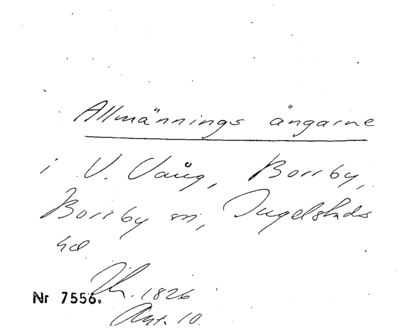 Allmännings ängarne
i V. Vång, Borrby,
Borrby sn, Ingelstads
hd
Nr 7556. 1826
Ant. 10.